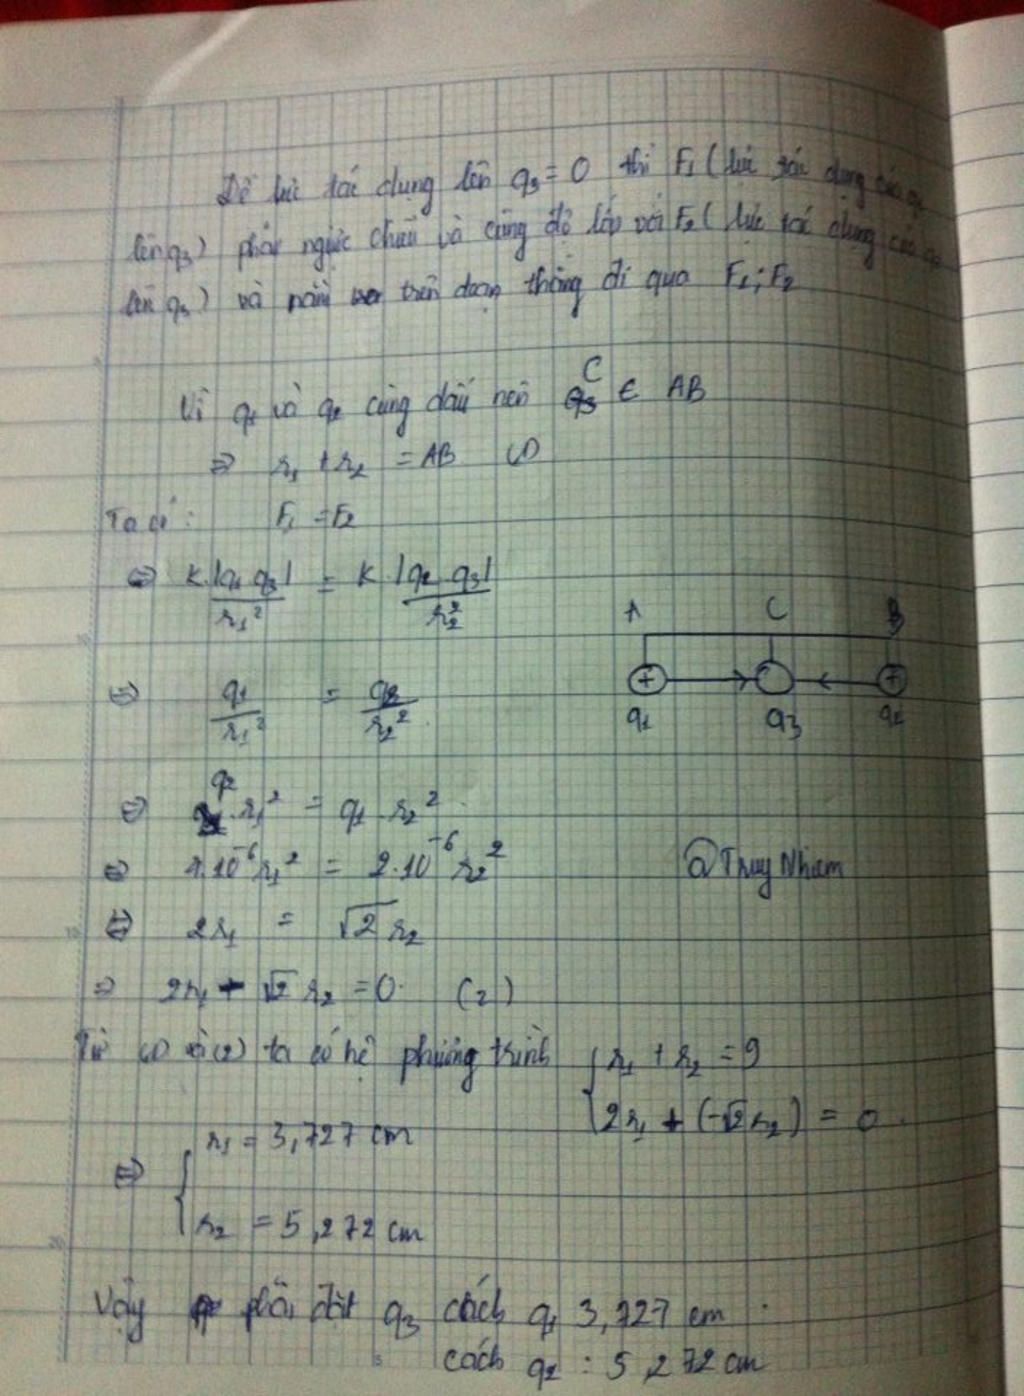 Để lực tác dụng lên q₃ = 0 thì F₁ ( lực tác dụng của q₁
lên q₃) phải ngược chiều và cùng độ lớn với F₂ ( lực tác dụng của q₂
lên q₃) và nằm trên đoạn thẳng đi qua F₁; F₂
Vì q₁ và q₂ cùng dấu nên C ∈ AB
⇒ r₁ + r₂ = AB (1)
Ta có: F₁ = F₂
⇔ K.|q₁ q₃| / r₁² = K.|q₂ q₃| / r₂²
A C B
⇔ q₁ / r₁² = q₂ / r₂²
+ +
q₁ q₃ q₂
⇔ q₂ . r₁² = q₁ . r₂²
⇔ 4.10⁻⁶ r₁² = 2.10⁻⁶ r₂²
@Thuy Nham
⇔ 2r₁ = √2 r₂
⇒ 2r₁ - √2 r₂ = 0 (2)
Từ (1) và (2) ta có hệ phương trình { r₁ + r₂ = 9
2r₁ + (-√2 r₂) = 0
⇔ { r₁ = 3,727 cm
r₂ = 5,272 cm
Vậy phải đặt q₃ cách q₁ 3,727 cm
cách q₂ : 5,272 cm